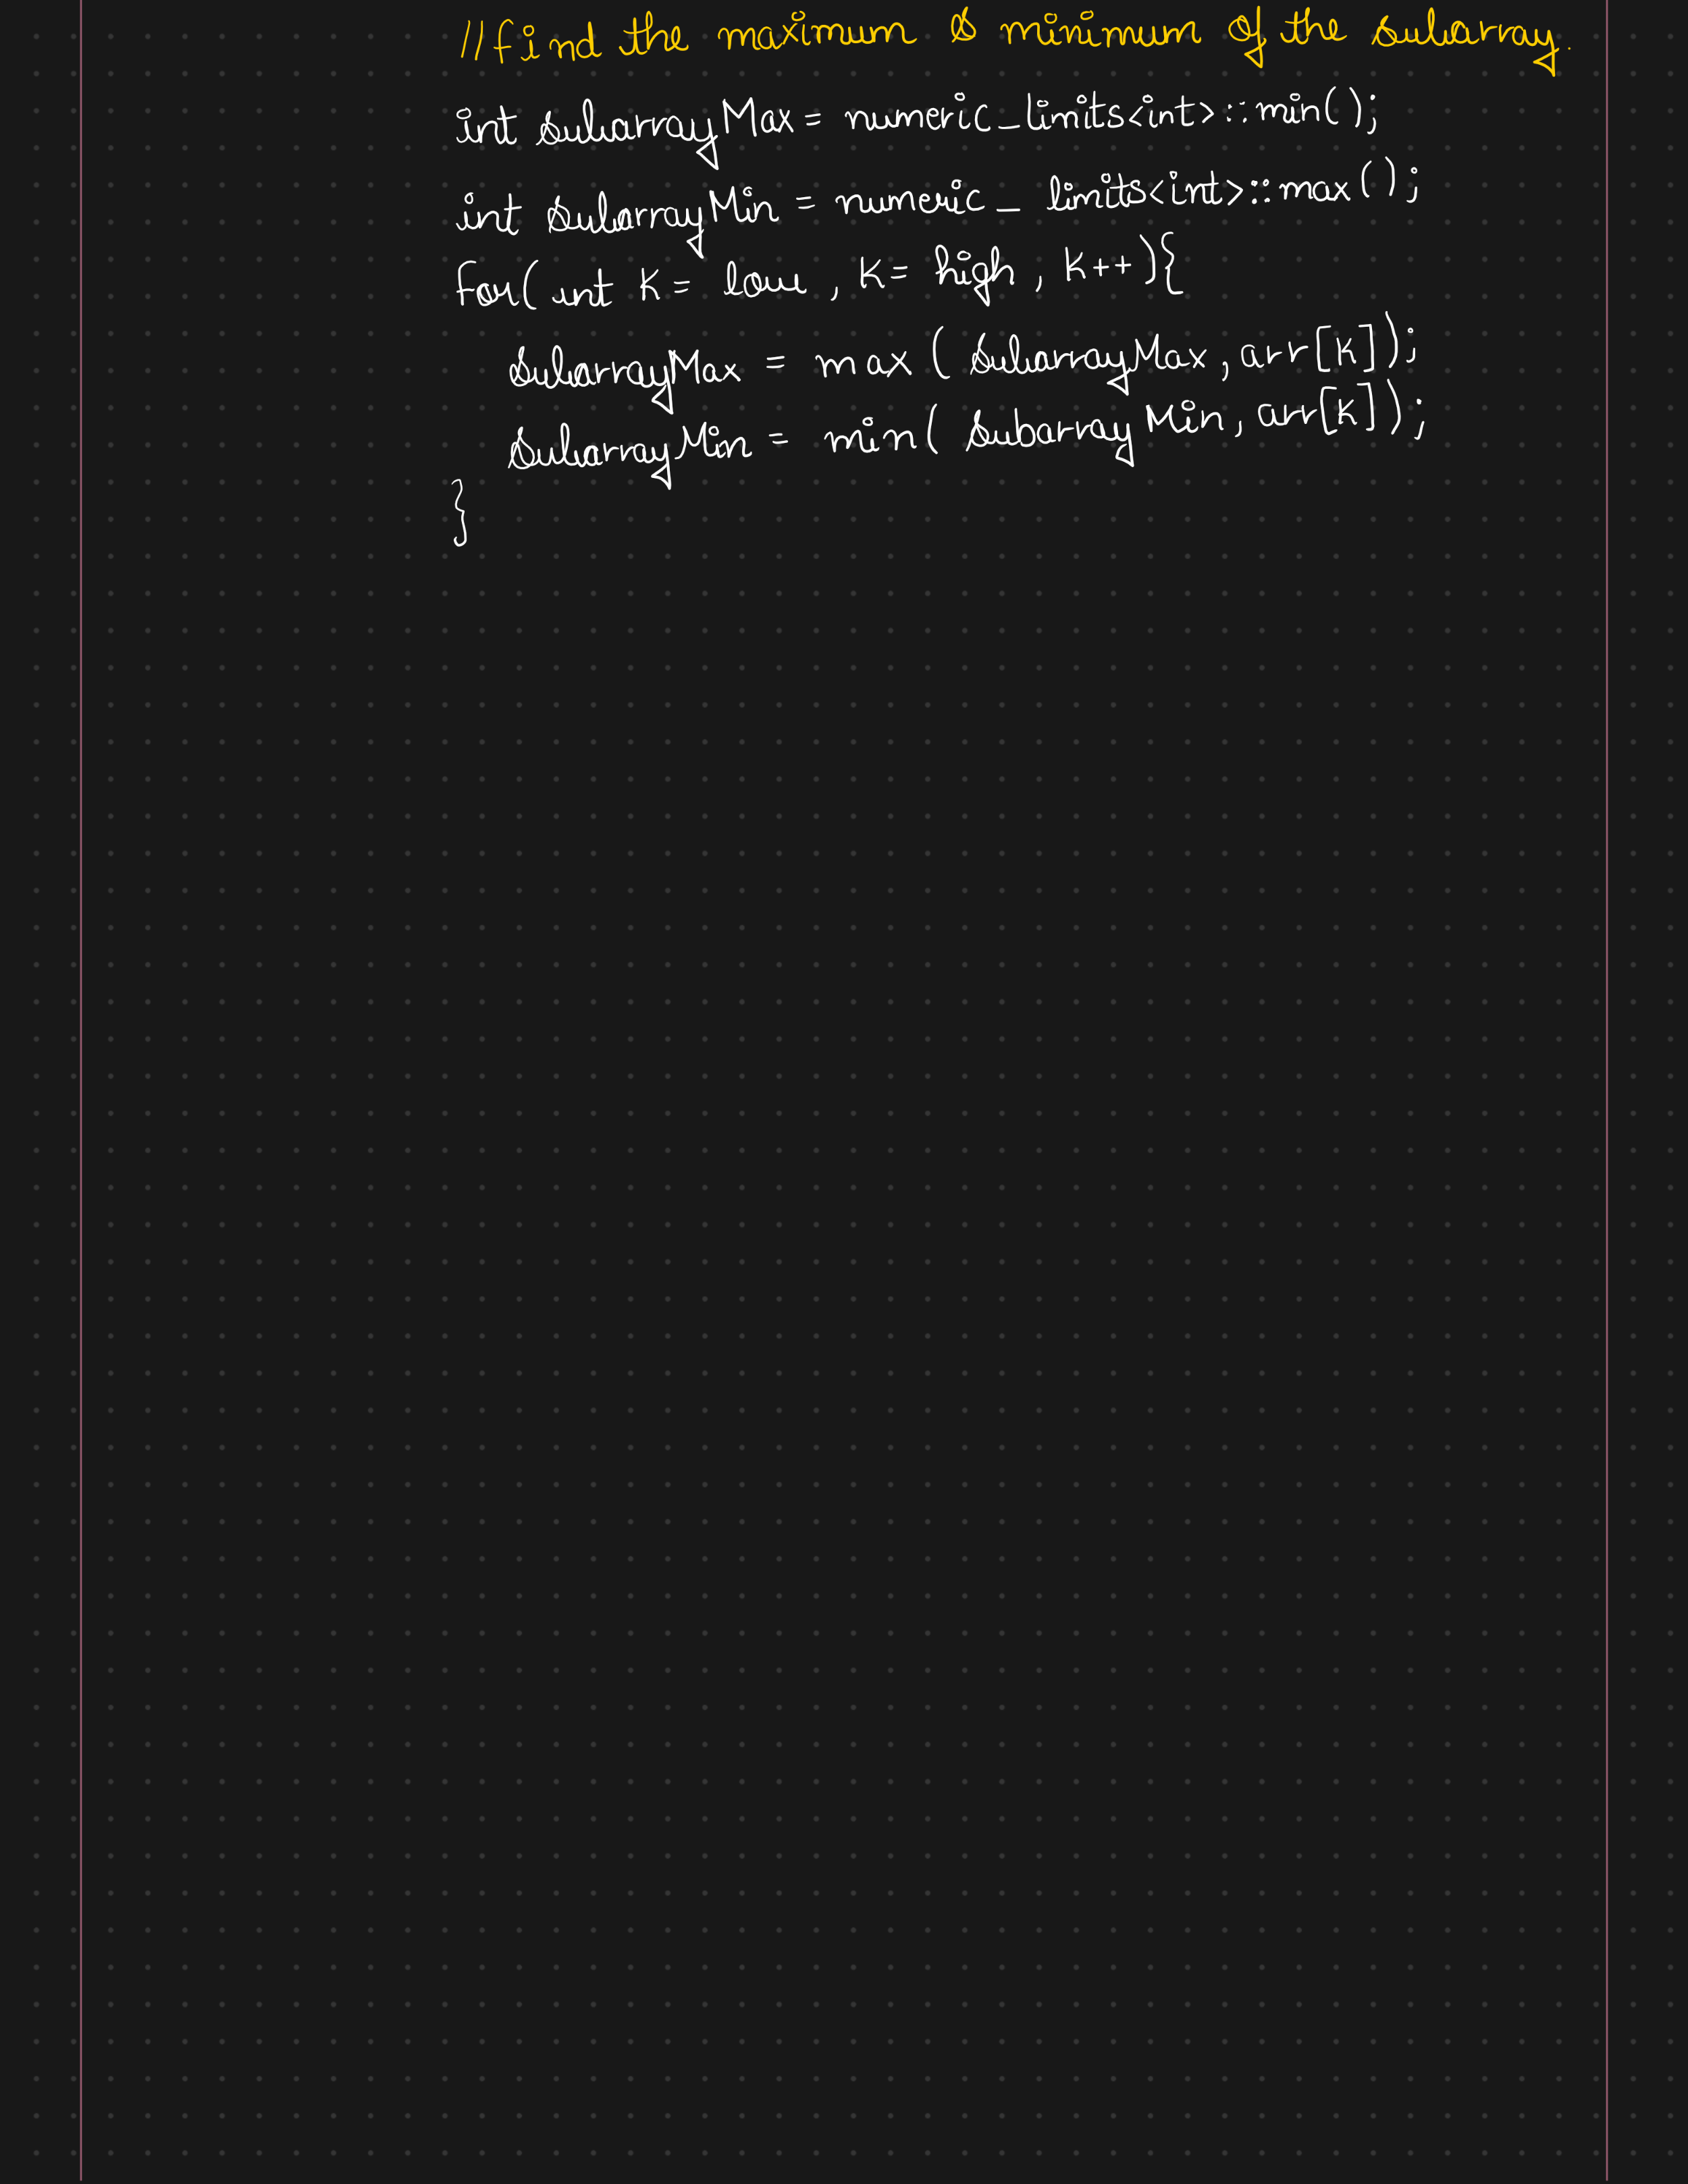 //find the maximum & minimum of the subarray.
int subarrayMax = numeric_limits<int>::min();
int subarrayMin = numeric_limits<int>::max();
for(int k = low, k = high, k++){
subarrayMax = max(subarrayMax, arr[k]);
subarrayMin = min(subarrayMin, arr[k]);
}